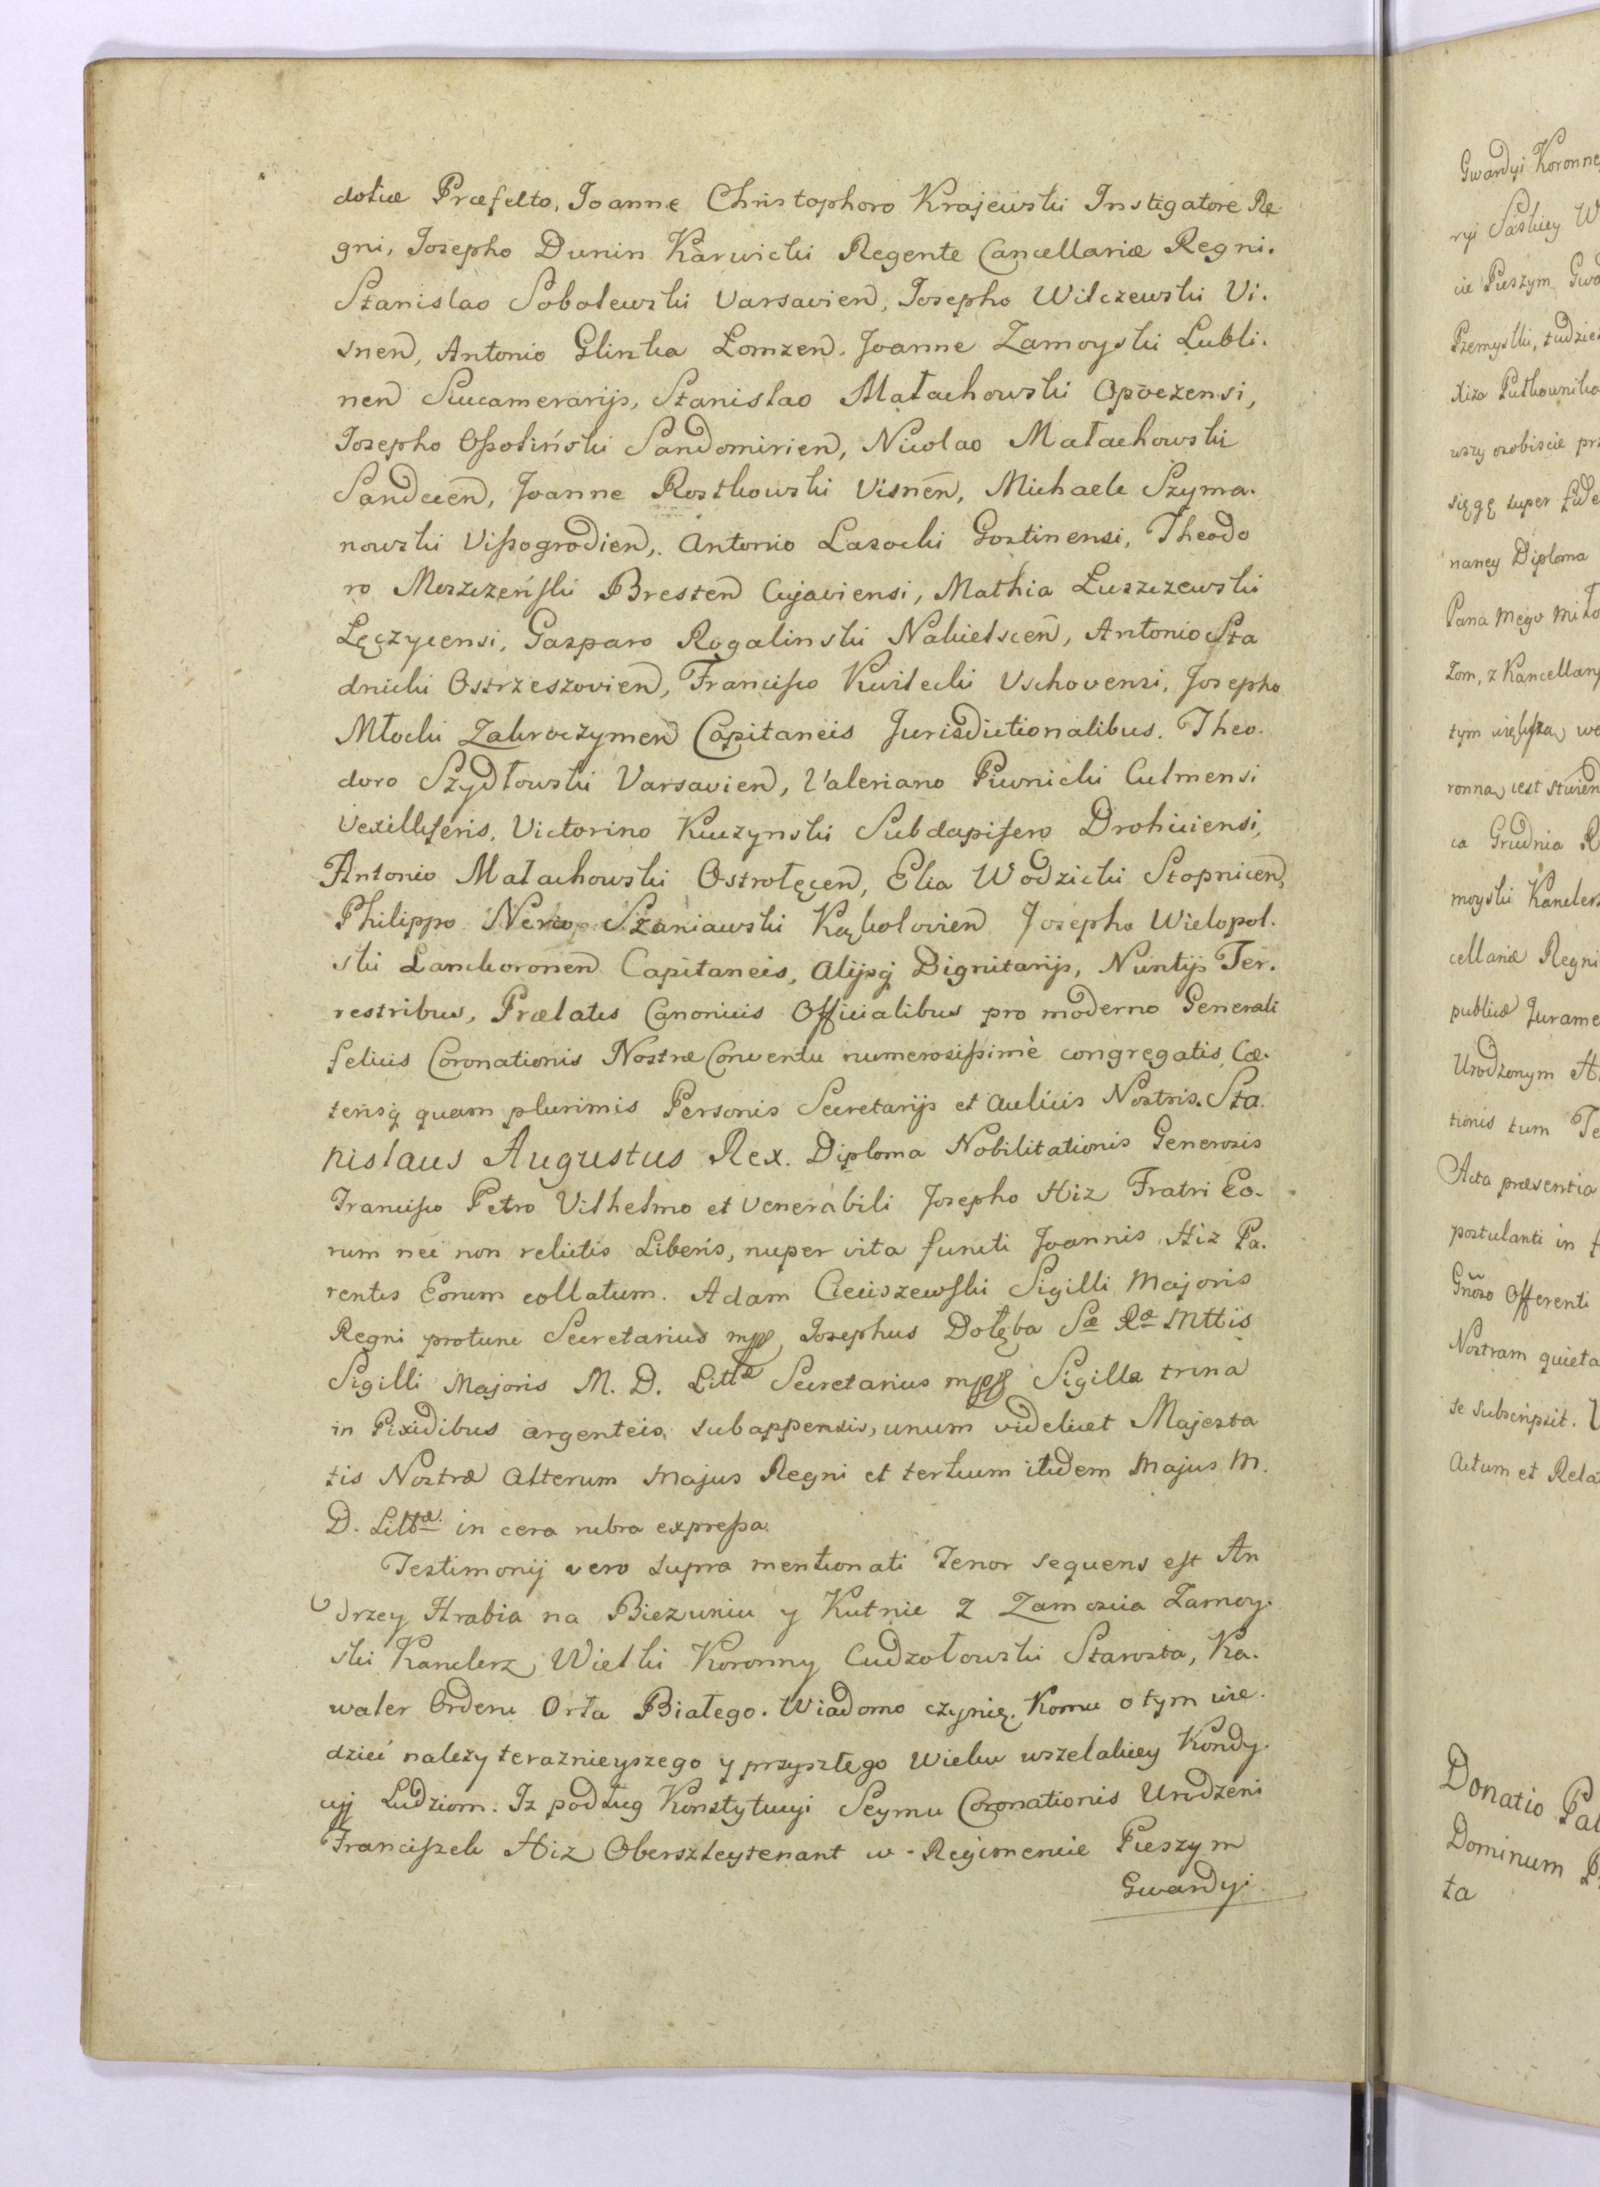 dotiæ Præfecto, Joanne Christophoro Krajewski Instigatore Re.
gni, Josepho Dunin Karwicki Regente Cancellariæ Regni.
Stanislao Sobolewski Varsavien, Josepho Wilczewski Vi.
snen, Antonio Glinka Lomzen. Joanne Zamoyski Lubli.
nen Succamerarijs, Stanislao Małachowski Opoczensi,
Josepho Ossoliński Sandomirien, Nicolao Małachowski
Sandecen, Joanne Rostkowski Visnen, Michaele Szyma.
nowski Vissogrodien, Antonio Lasocki Gostinensi, Theodo
ro Moszczeński Bresten Cujaviensi, Mathia Łuszczewski
Lęczycensi, Gasparo Rogalinski Nakielscen, Antonio Sta
dnicki Ostrzeszovien, Francisco Kwilecki Vschovensi, Josepho
Młocki Zakroczymen Capitaneis Jurisdictionalibus. Theo.
doro Szydłowski Varsavien, Valeriano Piwnicki Culmensi
Vexilliferis, Victorino Kuczynski Subdapifero Drohiciensi,
Antonio Małachowski Ostrołęcen, Elia Wodzicki Stopnicen,
Philippo Nerio Szaniawski Kąkolovien Josepho Wielopol.
ski Lanckoronen Capitaneis, Alijsq; Dignitarijs, Nuntijs Ter.
restribus, Prælatis Canonicis Officialibus pro moderno Generali
felicis Coronationis Nostræ Conventu numerosissimè congregatis, Cæ.
terisq; quam plurimis Personis Secretarijs et Aulicis Nostris. Sta.
nislaus Augustus Rex. Diploma Nobilitationis Generosis
Francisco Petro Vilhelmo et Venerabili Josepho Hiz Fratri Eo.
rum nec non relictis Liberis, nuper vita functi Joannis Hiz Pa.
rentis Eorum collatum. Adam Cieciszewski Sigilli Majoris
Regni protunc Secretarius mpp, Josephus Dołęba Sæ Ræ Mttis
Sigilli Majoris M. D. Littæ Secretarius mpp Sigilla trina
in Pixidibus argenteis, subappensis, unum videlicet Majesta
tis Nostræ Alterum Majus Regni et tertium itidem Majus M.
D. Littæ in cera rubra expressa.
Testimonij vero supra mentionati Tenor sequens est An
drzey Hrabia na Biezuniu y Kutnie z Zamoscia Zamoy.
ski Kanclerz Wielki Koronny Cudzołowski Starosta, Ka.
waler Orderu Orła Białego. Wiadomo czynię, Komu o tym wie.
dzieć należy teraznieyszego y przyszłego Wieku wszelakiey Kondy.
cyi Ludziom. Iz podług Konstytucyi Seymu Coronationis Urodzeni
Franciszek Hiz Oberszleytenant w Regimencie Pieszym
Gwardyi
Gwardyi Koronney
ryi Saskiey W
cie Pieszym Gwa
Przemyski, tudzież
Hiza Pułkownika
wszy osobiscie prz
sięgę super fide
naney Diploma
Pana mego Miło
Zom, z Kancellary
tym większą we
ronną iest stwierd
ca Grudnia R
moyski Kanclerz
cellariæ Regni
publicæ Jurame
Urodzonym H
tionis tum Te
Acta præsentia
postulanti in
Gnoso Offerenti
Nostram quieta
se subscripsit.
Actum et Rela
Donatio Pal
Dominum
ta